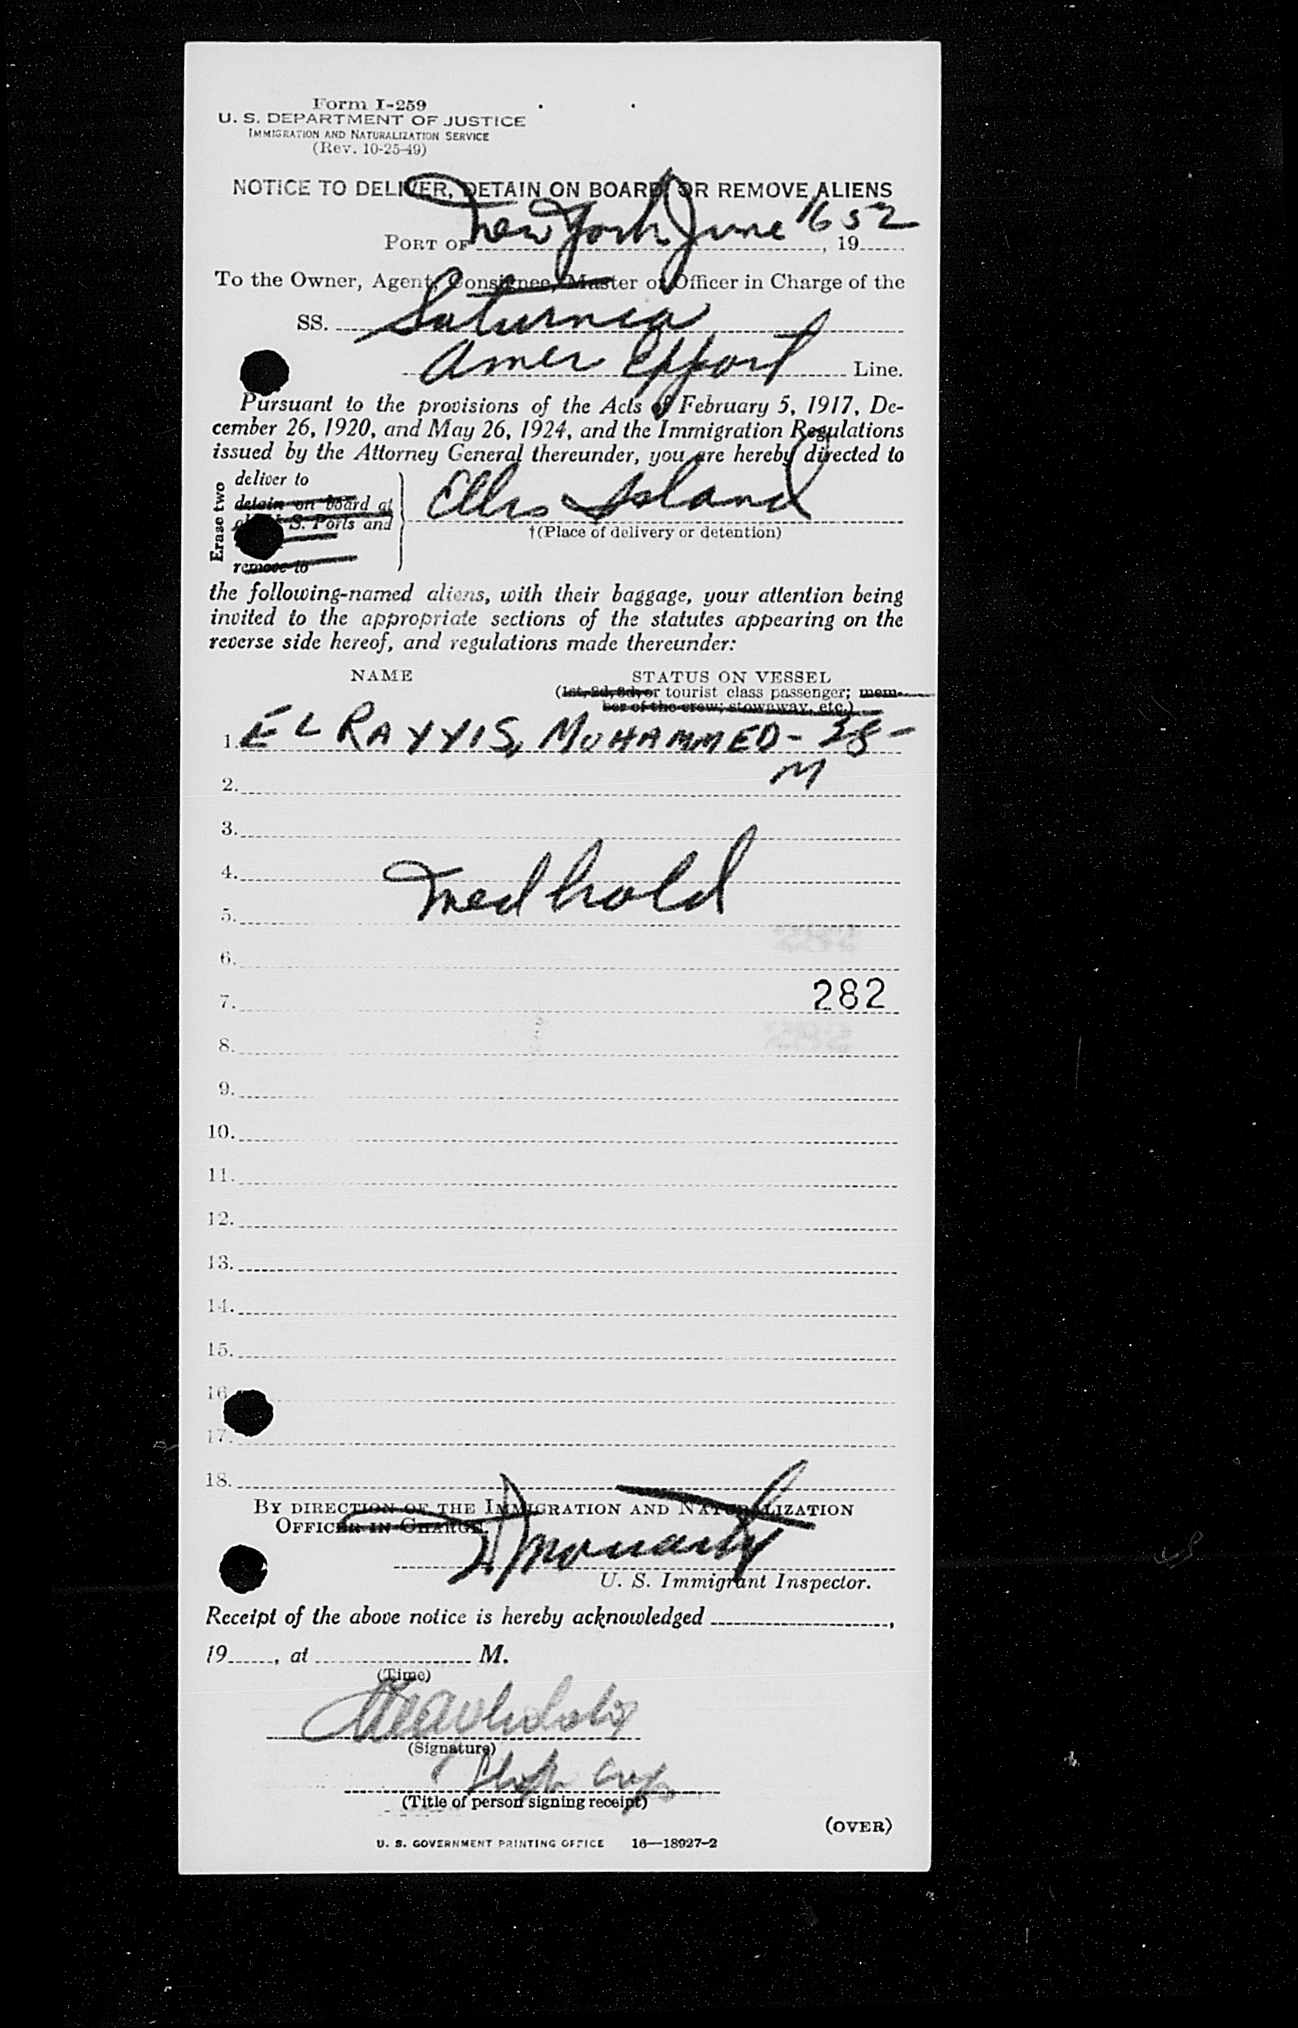 Form I-259
U. S. DEPARTMENT OF JUSTICE
IMMIGRATION AND NATURALIZATION SERVICE
(Rev. 10-25-49)
NOTICE TO DELIVER, DETAIN ON BOARD, OR REMOVE ALIENS
PORT OF New York June 16 52, 19
To the Owner, Agent, Consignee, Master or Officer in Charge of the
SS. Saturnia
Amer Export Line.
Pursuant to the provisions of the Acts of February 5, 1917, De-
cember 26, 1920, and May 26, 1924, and the Immigration Regulations
issued by the Attorney General thereunder, you are hereby directed to
Erase two
deliver to
detain on board at
S. Ports and
remove to
Ellis Island
†(Place of delivery or detention)
the following-named aliens, with their baggage, your attention being
invited to the appropriate sections of the statutes appearing on the
reverse side hereof, and regulations made thereunder:
NAME STATUS ON VESSEL
(1st, 2d, 3d, or tourist class passenger; mem-
ber of the crew; stowaway, etc.)
1. EL RAYYIS, MUHAMMED - 38 -
M
2.
3.
4.
Med hold
5.
6.
7. 282
8.
9.
10.
11.
12.
13.
14.
15.
16.
17.
18.
BY DIRECTION OF THE IMMIGRATION AND NATURALIZATION
OFFICER IN CHARGE.
Moriarty
U. S. Immigrant Inspector.
Receipt of the above notice is hereby acknowledged ,
19 , at M.
(Time)
(Signature)
(Title of person signing receipt)
(OVER)
U. S. GOVERNMENT PRINTING OFFICE 16—18927-2